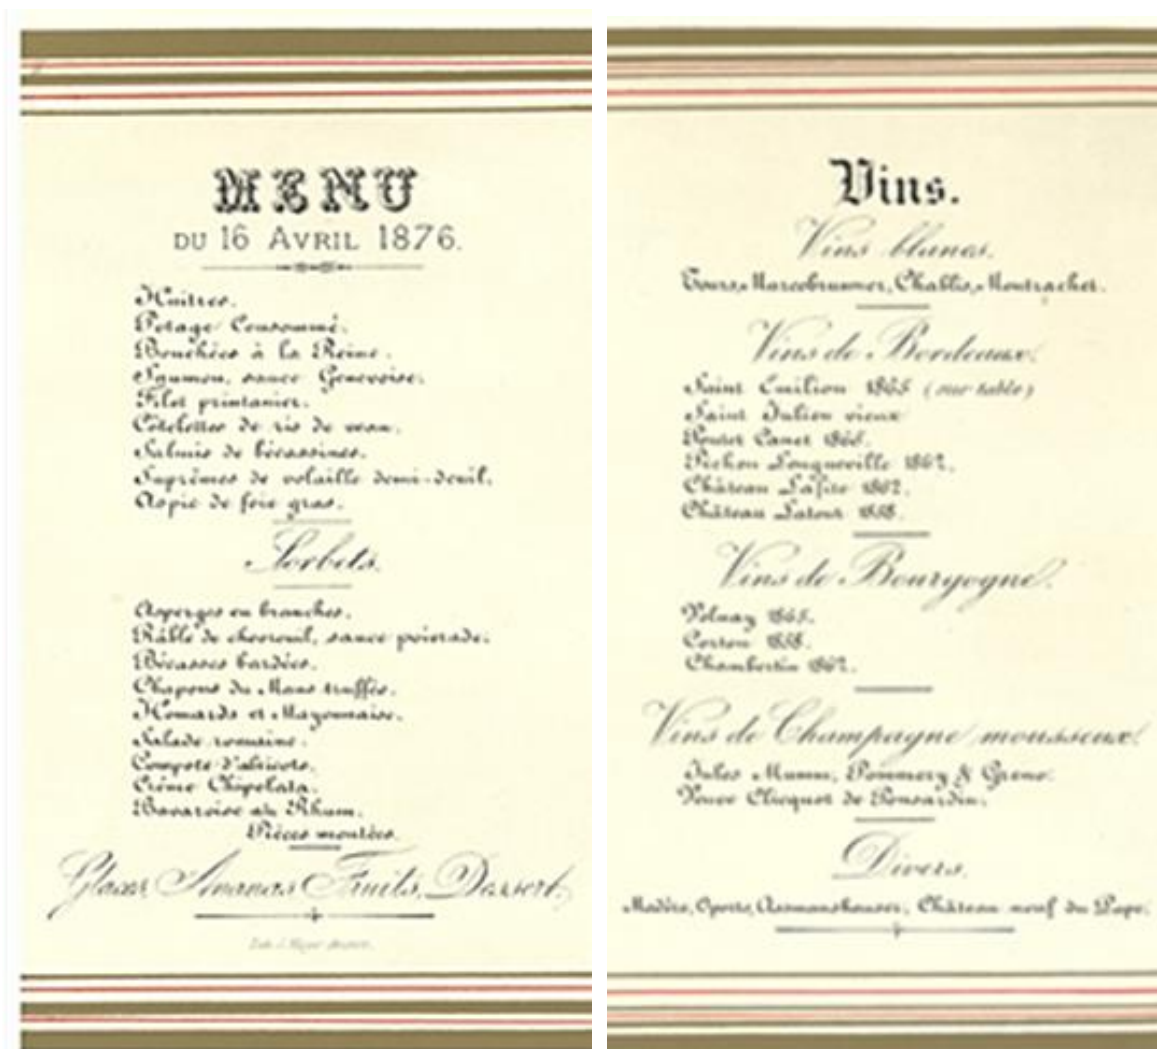 MENU
DU 16 AVRIL 1876.
Huîtres.
Potage Consommé.
Bouchées à la Reine.
Saumon, sauce Genevoise.
Filet printanier.
Côtelettes de ris de veau.
Salmis de bécassines.
Suprêmes de volaille demi-deuil.
Aspic de foie gras.
Sorbets.
Asperges en branches.
Râble de chevreuil, sauce poivrade.
Bécasses bardées.
Chapons du Mans truffés.
Homards et Mayonnaise.
Salade romaine.
Compote d'abricots.
Crème Chipolata.
Bavaroise au Rhum.
Pièces montées.
Glaces, Ananas, Fruits, Dessert.
Vins.
Vins blancs.
Marcobrunner, Chablis, Montrachet.
Vins de Bordeaux.
Saint Emilion 1865 (sur table)
Saint Julien vieux
Pontet Canet
Pichon Longueville
Château Lafite
Château Latour
Vins de Bourgogne.
Volnay 1865.
Corton
Chambertin
Vins de Champagne mousseux.
Jules Mumm, Pommery & Greno.
Veuve Clicquot de Ponsardin.
Divers.
Madère, Oporto, Assmanshauser, Château neuf du Pape.